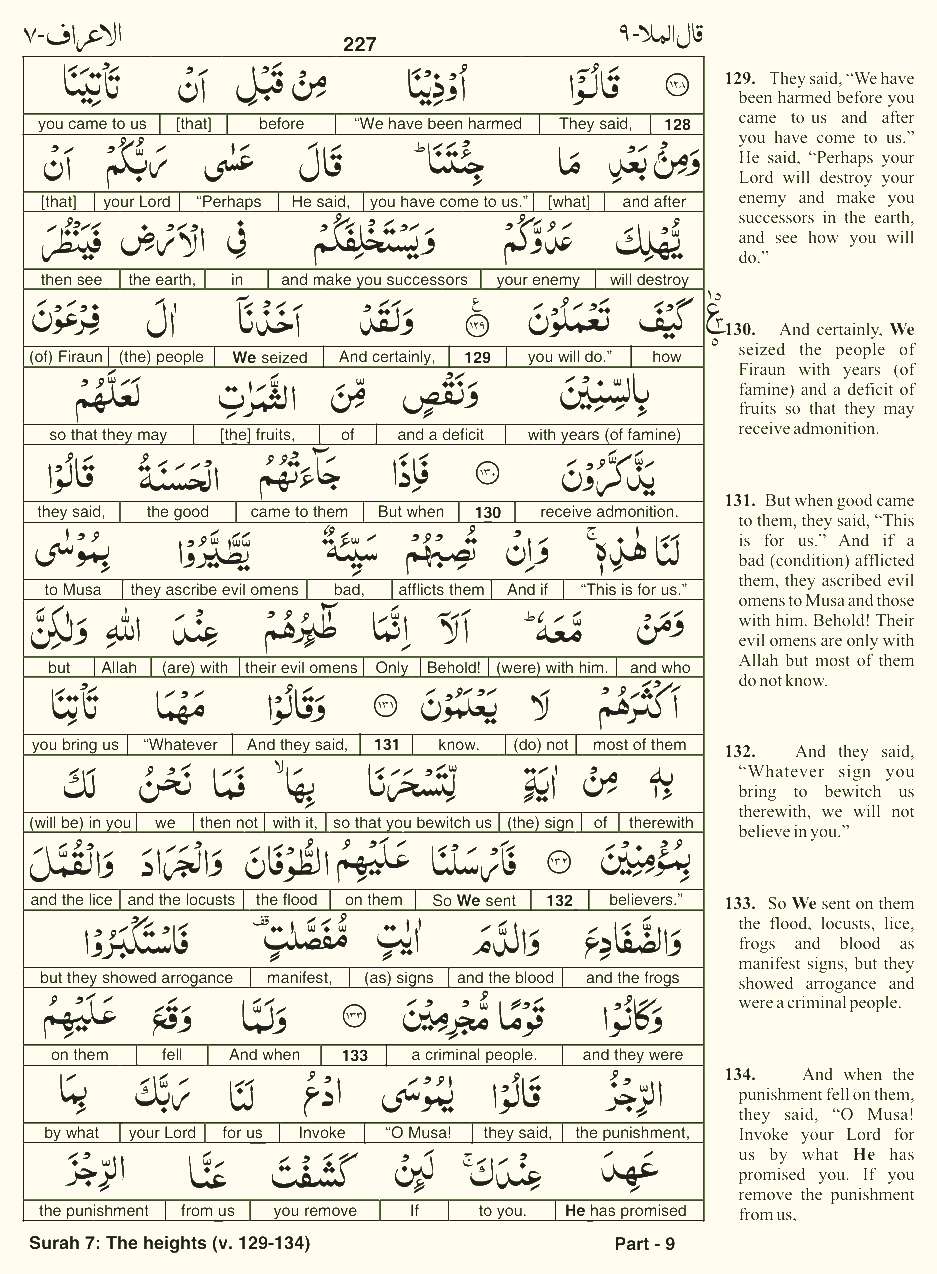 قال الملا-٩ 227 الاعراف-٧
١٢٨ قَالُوْٓا اُوْذِيْنَا مِنْ قَبْلِ اَنْ تَاْتِيَنَا
128 They said, “We have been harmed before [that] you came to us
وَمِنْۢ بَعْدِ مَا جِئْتَنَا ؕ قَالَ عَسٰى رَبُّكُمْ اَنْ
and after [what] you have come to us.” He said, “Perhaps your Lord [that]
يُّهْلِكَ عَدُوَّكُمْ وَيَسْتَخْلِفَكُمْ فِى الْاَرْضِ فَيَنْظُرَ
will destroy your enemy and make you successors in the earth, then see
كَيْفَ تَعْمَلُوْنَ ١٢٩ ع وَلَقَدْ اَخَذْنَاۤ اٰلَ فِرْعَوْنَ
how you will do.” 129 And certainly, We seized (the) people (of) Firaun
بِالسِّنِيْنَ وَنَقْصٍ مِّنَ الثَّمَرٰتِ لَعَلَّهُمْ
with years (of famine) and a deficit of [the] fruits, so that they may
يَذَّكَّرُوْنَ ١٣٠ فَاِذَا جَآءَتْهُمُ الْحَسَنَةُ قَالُوْا
receive admonition. 130 But when came to them the good they said,
لَنَا هٰذِهٖ ۚ وَاِنْ تُصِبْهُمْ سَيِّئَةٌ يَّطَّيَّرُوْا بِمُوْسٰى
“This is for us.” And if afflicts them bad, they ascribe evil omens to Musa
وَمَنْ مَّعَهٗ ؕ اَلَاۤ اِنَّمَا طٰٓئِرُهُمْ عِنْدَ اللّٰهِ وَلٰكِنَّ
and who (were) with him. Behold! Only their evil omens (are) with Allah but
اَكْثَرَهُمْ لَا يَعْلَمُوْنَ ١٣١ وَقَالُوْا مَهْمَا تَاْتِنَا
most of them (do) not know. 131 And they said, “Whatever you bring us
بِهٖ مِنْ اٰيَةٍ لِّتَسْحَرَنَا بِهَا ۙ فَمَا نَحْنُ لَكَ
therewith of (the) sign so that you bewitch us with it, then not we (will be) in you
بِمُؤْمِنِيْنَ ١٣٢ فَاَرْسَلْنَا عَلَيْهِمُ الطُّوْفَانَ وَالْجَرَادَ وَالْقُمَّلَ
believers.” 132 So We sent on them the flood and the locusts and the lice
وَالضَّفَادِعَ وَالدَّمَ اٰيٰتٍ مُّفَصَّلٰتٍ ۟ فَاسْتَكْبَرُوْا
and the frogs and the blood (as) signs manifest, but they showed arrogance
وَكَانُوْا قَوْمًا مُّجْرِمِيْنَ ١٣٣ وَلَمَّا وَقَعَ عَلَيْهِمُ
and they were a criminal people. 133 And when fell on them
الرِّجْزُ قَالُوْا يٰمُوْسَى ادْعُ لَنَا رَبَّكَ بِمَا
the punishment, they said, “O Musa! Invoke for us your Lord by what
عَهِدَ عِنْدَكَ ۚ لَئِنْ كَشَفْتَ عَنَّا الرِّجْزَ
He has promised to you. If you remove from us the punishment
129. They said, “We have
been harmed before you
came to us and after
you have come to us.”
He said, “Perhaps your
Lord will destroy your
enemy and make you
successors in the earth,
and see how you will
do.”
130. And certainly, We
seized the people of
Firaun with years (of
famine) and a deficit of
fruits so that they may
receive admonition.
131. But when good came
to them, they said, “This
is for us.” And if a
bad (condition) afflicted
them, they ascribed evil
omens to Musa and those
with him. Behold! Their
evil omens are only with
Allah but most of them
do not know.
132. And they said,
“Whatever sign you
bring to bewitch us
therewith, we will not
believe in you.”
133. So We sent on them
the flood, locusts, lice,
frogs and blood as
manifest signs, but they
showed arrogance and
were a criminal people.
134. And when the
punishment fell on them,
they said, “O Musa!
Invoke your Lord for
us by what He has
promised you. If you
remove the punishment
from us,
Surah 7: The heights (v. 129-134) Part - 9